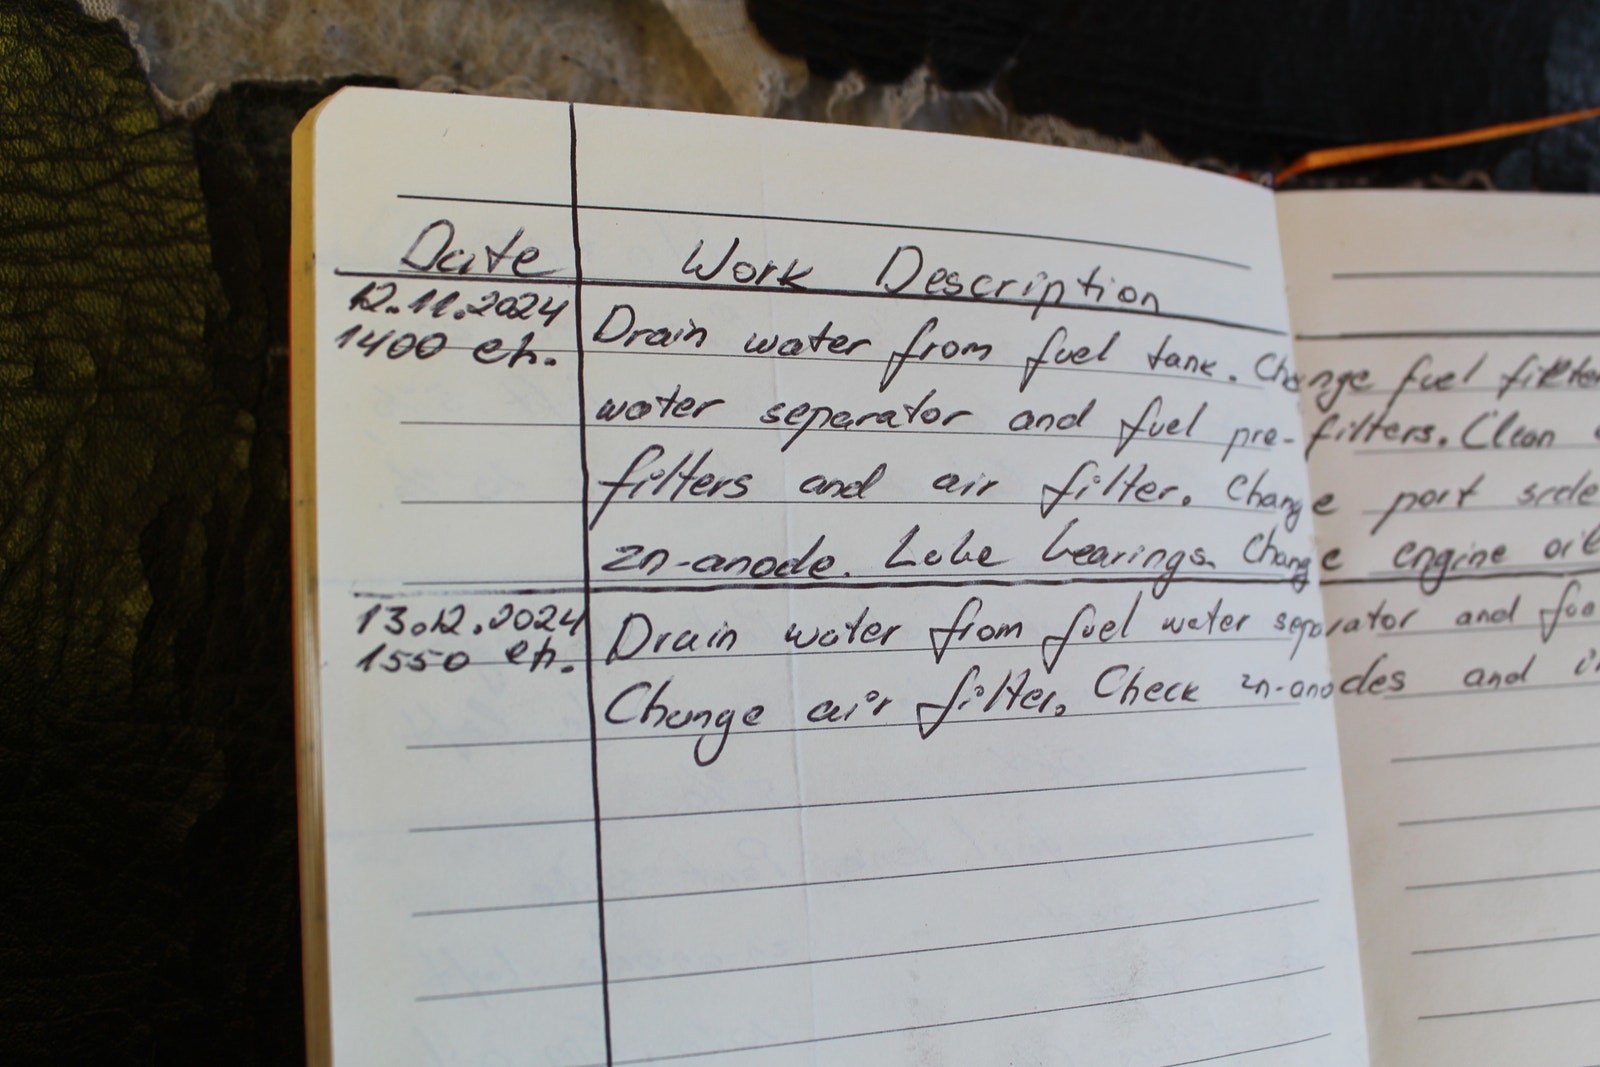 Date Work Description
12.11.2024 Drain water from fuel tank. Change fuel filter
1400 eh.
water separator and fuel pre-filters. Clean
filters and air filter. Change port side
zn-anode. Lube bearings. Change engine oil
13.12.2024 Drain water from fuel water separator and
1550 eh.
Change air filter. Check zn-anodes and